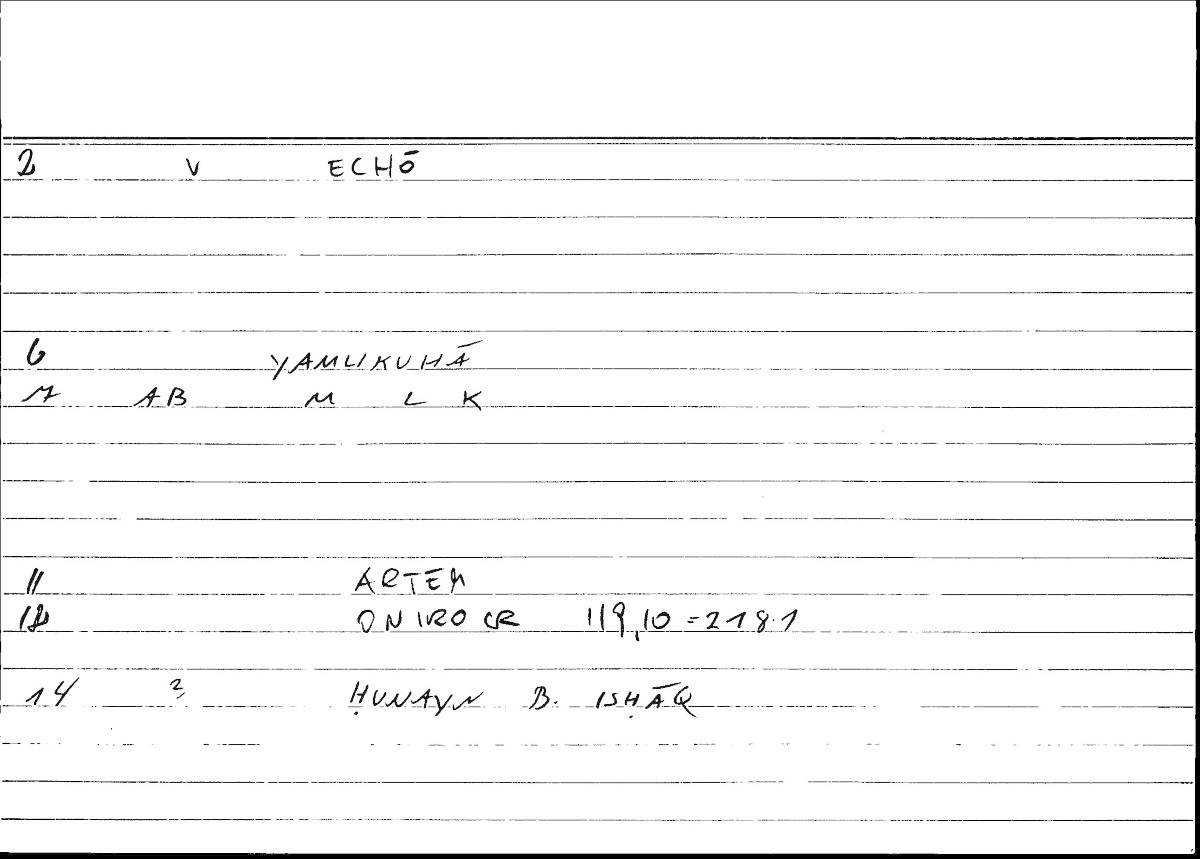 2 V ECHŌ
6 YAMLIKUHĀ
7 AB M L K
11 ARTEM
12 ONIROCR 119,10 = 218.1
14 2, ḤUNAYN B. ISḤĀQ